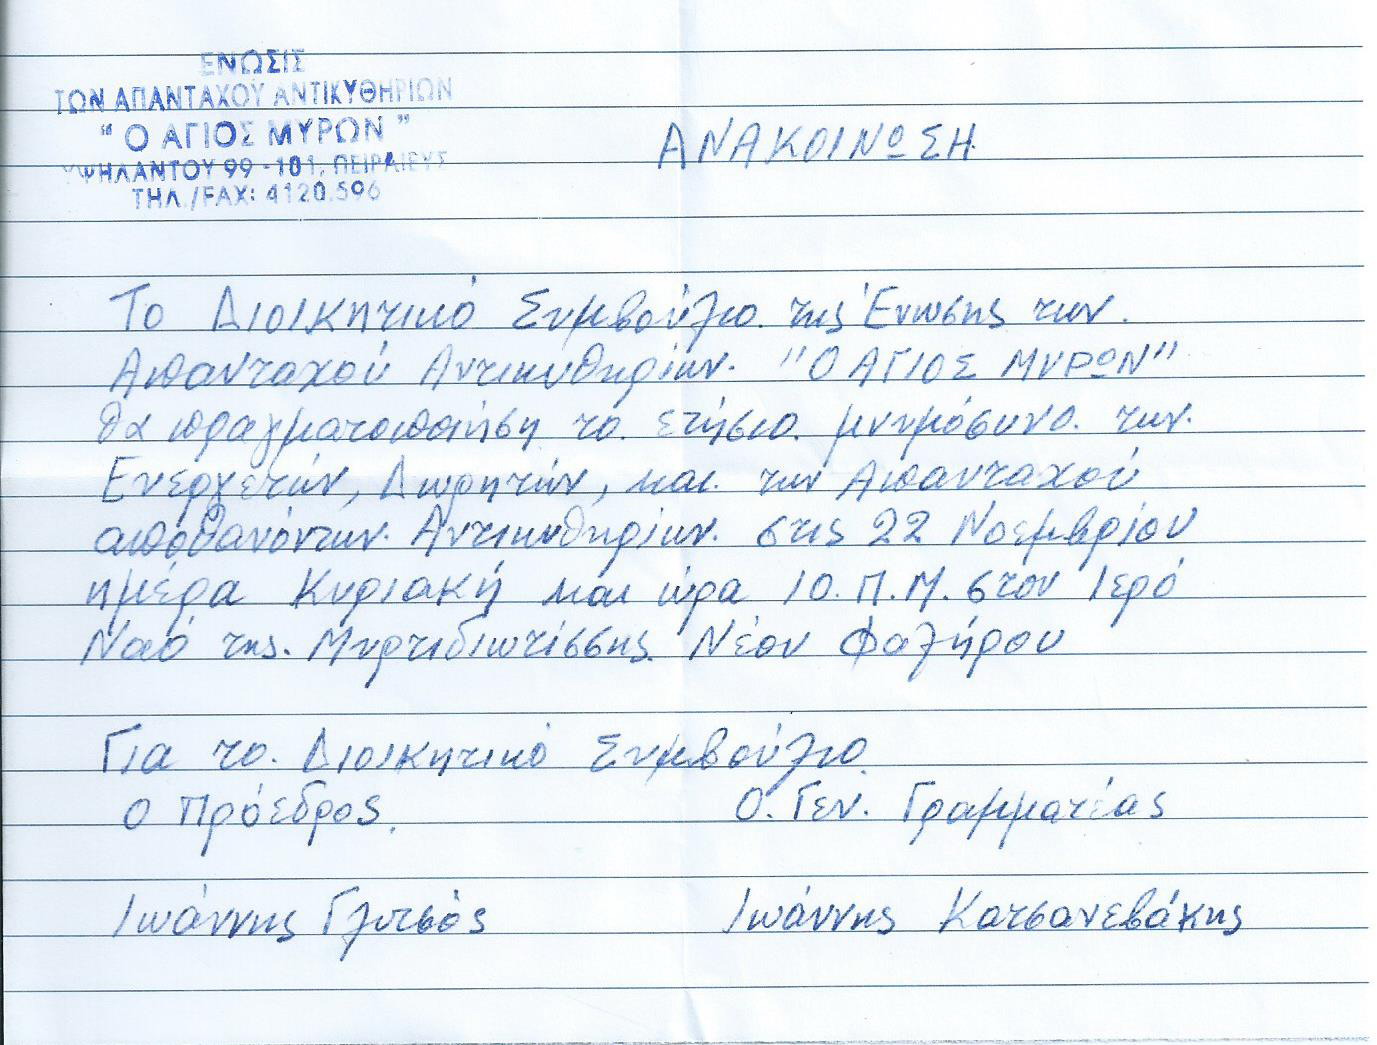 ΕΝΩΣΙΣ
ΤΩΝ ΑΠΑΝΤΑΧΟΥ ΑΝΤΙΚΥΘΗΡΙΩΝ
"Ο ΑΓΙΟΣ ΜΥΡΩΝ"
ΥΨΗΛΑΝΤΟΥ 99-101, ΠΕΙΡΑΙΕΥΣ
ΤΗΛ./FAX: 4120.596
ΑΝΑΚΟΙΝΩΣΗ
Το Διοικητικό Συμβούλιο της Ένωσης των
Απανταχού Αντικυθηρίων "Ο ΑΓΙΟΣ ΜΥΡΩΝ"
θα πραγματοποιήση το ετήσιο μνημόσυνο των
Ευεργετών, Δωρητών, και των Απανταχού
αποθανόντων Αντικυθηρίων στις 22 Νοεμβρίου
ημέρα Κυριακή και ώρα 10 Π.Μ. στον Ιερό
Ναό της Μυρτιδιωτίσσης Νέου Φαλήρου
Για το Διοικητικό Συμβούλιο
Ο Πρόεδρος Ο Γεν. Γραμματέας
Ιωάννης Γλυτσός Ιωάννης Κατσανεβάκης